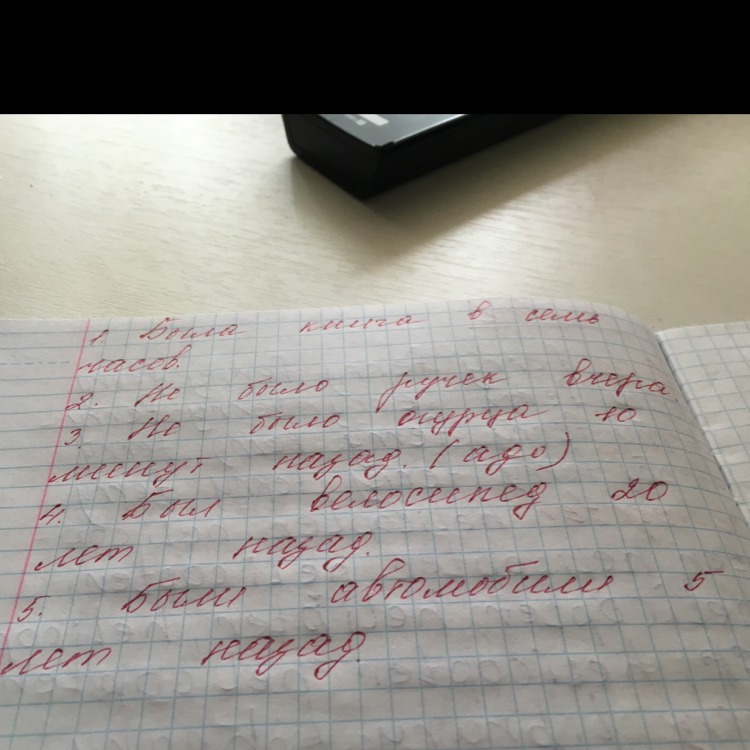 1 Была книга в семь
часов.
2. Не было ручек вчера
3. Не было огурца 10
минут назад. (адо)
4. Был велосипед 20
лет назад.
5. Были автомобили 5
лет назад.